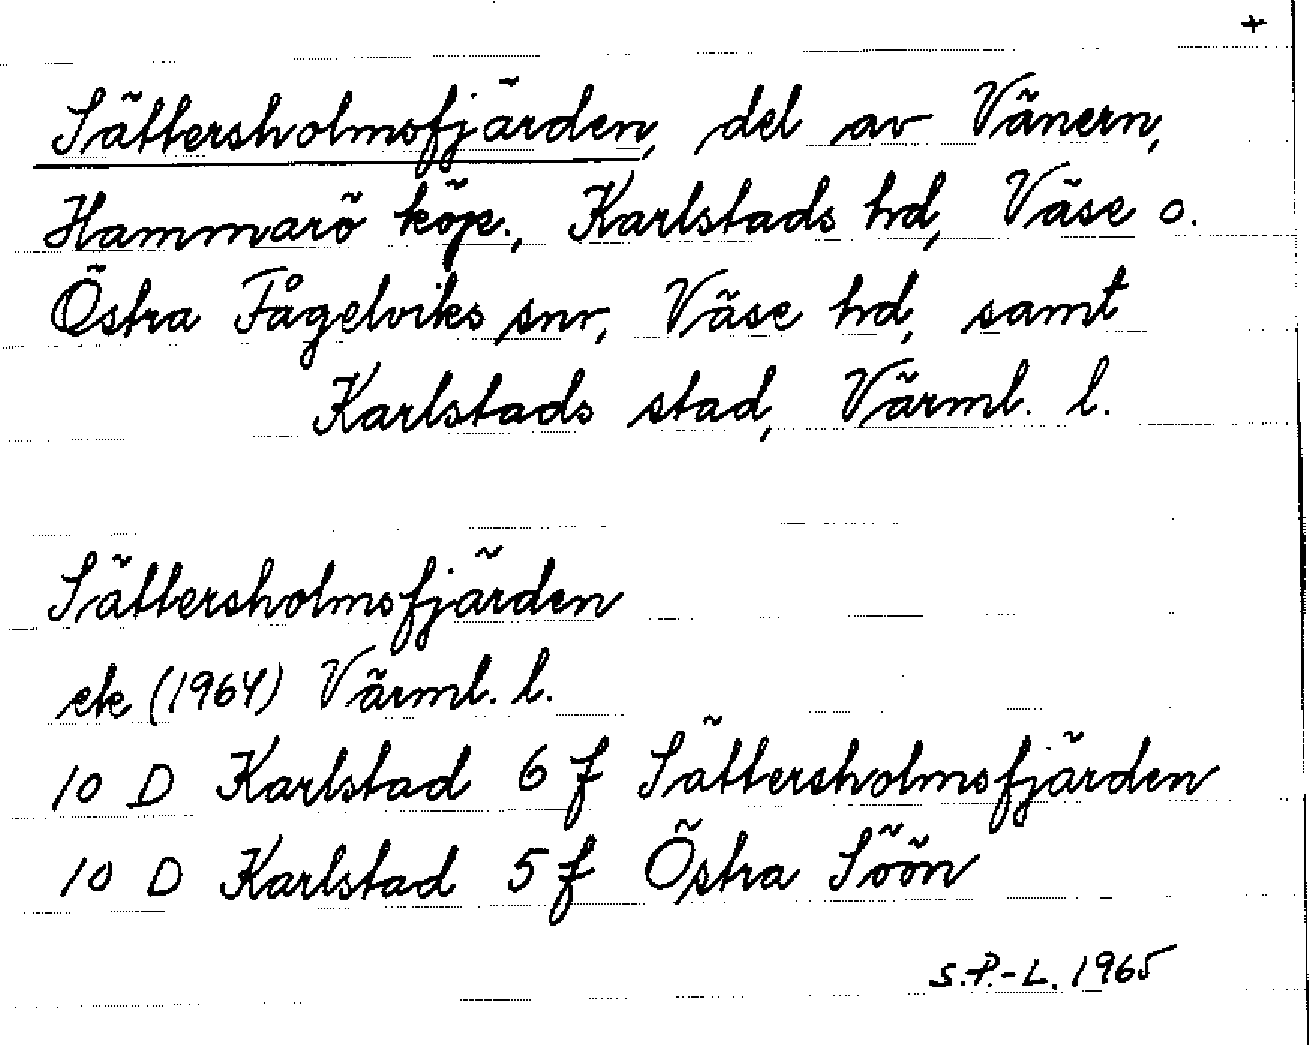 +
Sättersholmsfjärden, del av Vänern,
Hammarö köp., Karlstads hd, Väse o.
Östra Fågelviks snr, Väse hd, samt
Karlstads stad, Värml. l.
Sättersholmsfjärden
ek (1964) Värml. l.
10 D Karlstad 6 f Sättersholmsfjärden
10 D Karlstad 5 f Östra Söön
S.P.-L. 1965